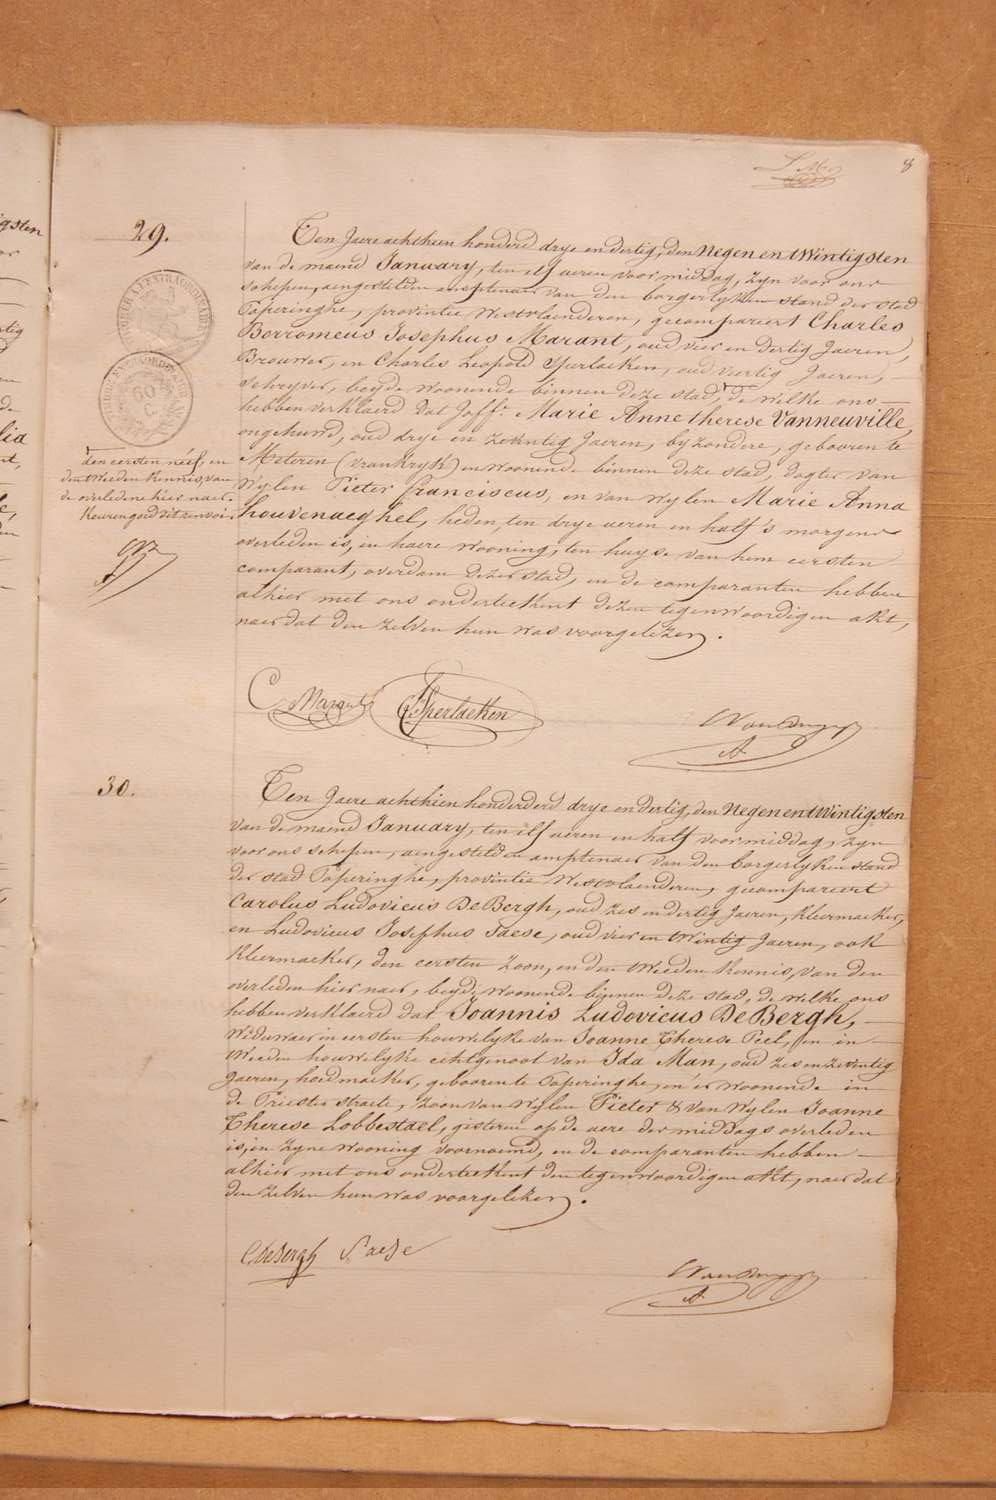 8
29.
Ten Jaere achthien honderd drye en dertig, den Negen en twintigsten
van de maend January, ten elf ueren voor middag, zyn voor ons
schepen, aengestelden amptenaer van den borgerlyken stand der stad
Poperinghe, provintie Westvlaenderen, gecompareert Charles
Borromeus Josephus Marant, oud vier en dertig Jaeren,
Brouwer, en Charles Leopold Sperlaeken, oud veertig Jaeren,
schryver, beyde woonende binnen deze stad, de welke ons
hebben verklaerd dat Joffr. Marie Anne therese Vanneuville,
ongehuwd, oud drye en zeventig Jaeren, byzondere, gebooren te
Meteren (vrankryk) en woonende binnen deze stad, dogter van
Wylen Pieter franciscus, en van wylen Marie Anna
houvenaeghel, heden, ten drye ueren en half 's morgens
overleden is, in haere wooning, ten huyse van hem eersten
comparant, overdam dezer stad, en de comparanten hebben
alhier met ons onderteekent dezen tegenwoordigen akt,
naer dat den zelven hun was voorgelezen.
den eersten néef, en
den tweeden kennis, van
de overledene hier naer.
Keuren goed dit renvoi.
C Marant
C L Sperlaeken
30.
Ten Jaere achthien honderderd drye en dertig, den Negen en twintigsten
van de maend January, ten elf ueren en half voor middag, zyn
voor ons schepen, aengestelden amptenaer van den borgerlyken stand
der stad Poperinghe, provintie Westvlaenderen, gecompareert
Carolus Ludovicus De Bergh, oud zes en dertig Jaeren, kleermaeker,
en Ludovicus Josephus Saese, oud vier en twintig Jaeren, ook
kleermaeker, den eersten zoon, en den tweeden kennis, van den
overleden hier naer, beyde woonende binnen deze stad, de welke ons
hebben verklaerd dat Joannis Ludovicus De Bergh,
Widuwaer in eersten houwelyke van Joanne Therese Peel, en in
tweeden houwelyke echtgenoot van Ida Man, oud zes en zeventig
Jaeren, hoedmaeker, gebooren te Poperinghe, en er woonende in
de Priester straete, zoon van wylen Pieter & van wylen Joanne
Therese Lobbestael, gisteren op de uere der middags overleden
is, in zyne wooning voornoemd, en de comparanten hebben
alhier met ons onderteekent den tegenwoordigen akt, naer dat
den zelven hun was voorgelezen.
C, DeBergh Saese